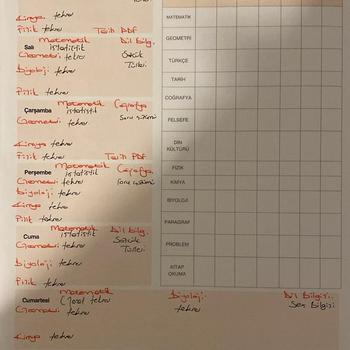 Kimya tekrar
Fizik tekrar Tarih PDF
Matematik Dil Bilg.
Salı istatistik Sözcük
Geometri tekrar Türleri
Biyoloji tekrar
Fizik tekrar
Matematik Coğrafya
Çarşamba istatistik Soru çözümü
Geometri tekrar
Kimya tekrar
Fizik tekrar Tarih PDF
Matematik Coğrafya
Perşembe istatistik Soru çözümü
Geometri tekrar
Biyoloji tekrar
Kimya tekrar
Fizik tekrar
Matematik Dil Bilg.
Cuma istatistik Sözcük
Geometri tekrar Türleri
Biyoloji tekrar
Fizik tekrar
Matematik Biyoloji Dil Bilgisi
Cumartesi Genel tekrar tekrar Ses Bilgisi
Geometri tekrar
Kimya tekrar
MATEMATİK
GEOMETRİ
TÜRKÇE
TARİH
COĞRAFYA
FELSEFE
DİN
KÜLTÜRÜ
FİZİK
KİMYA
BİYOLOJİ
PARAGRAF
PROBLEM
KİTAP
OKUMA